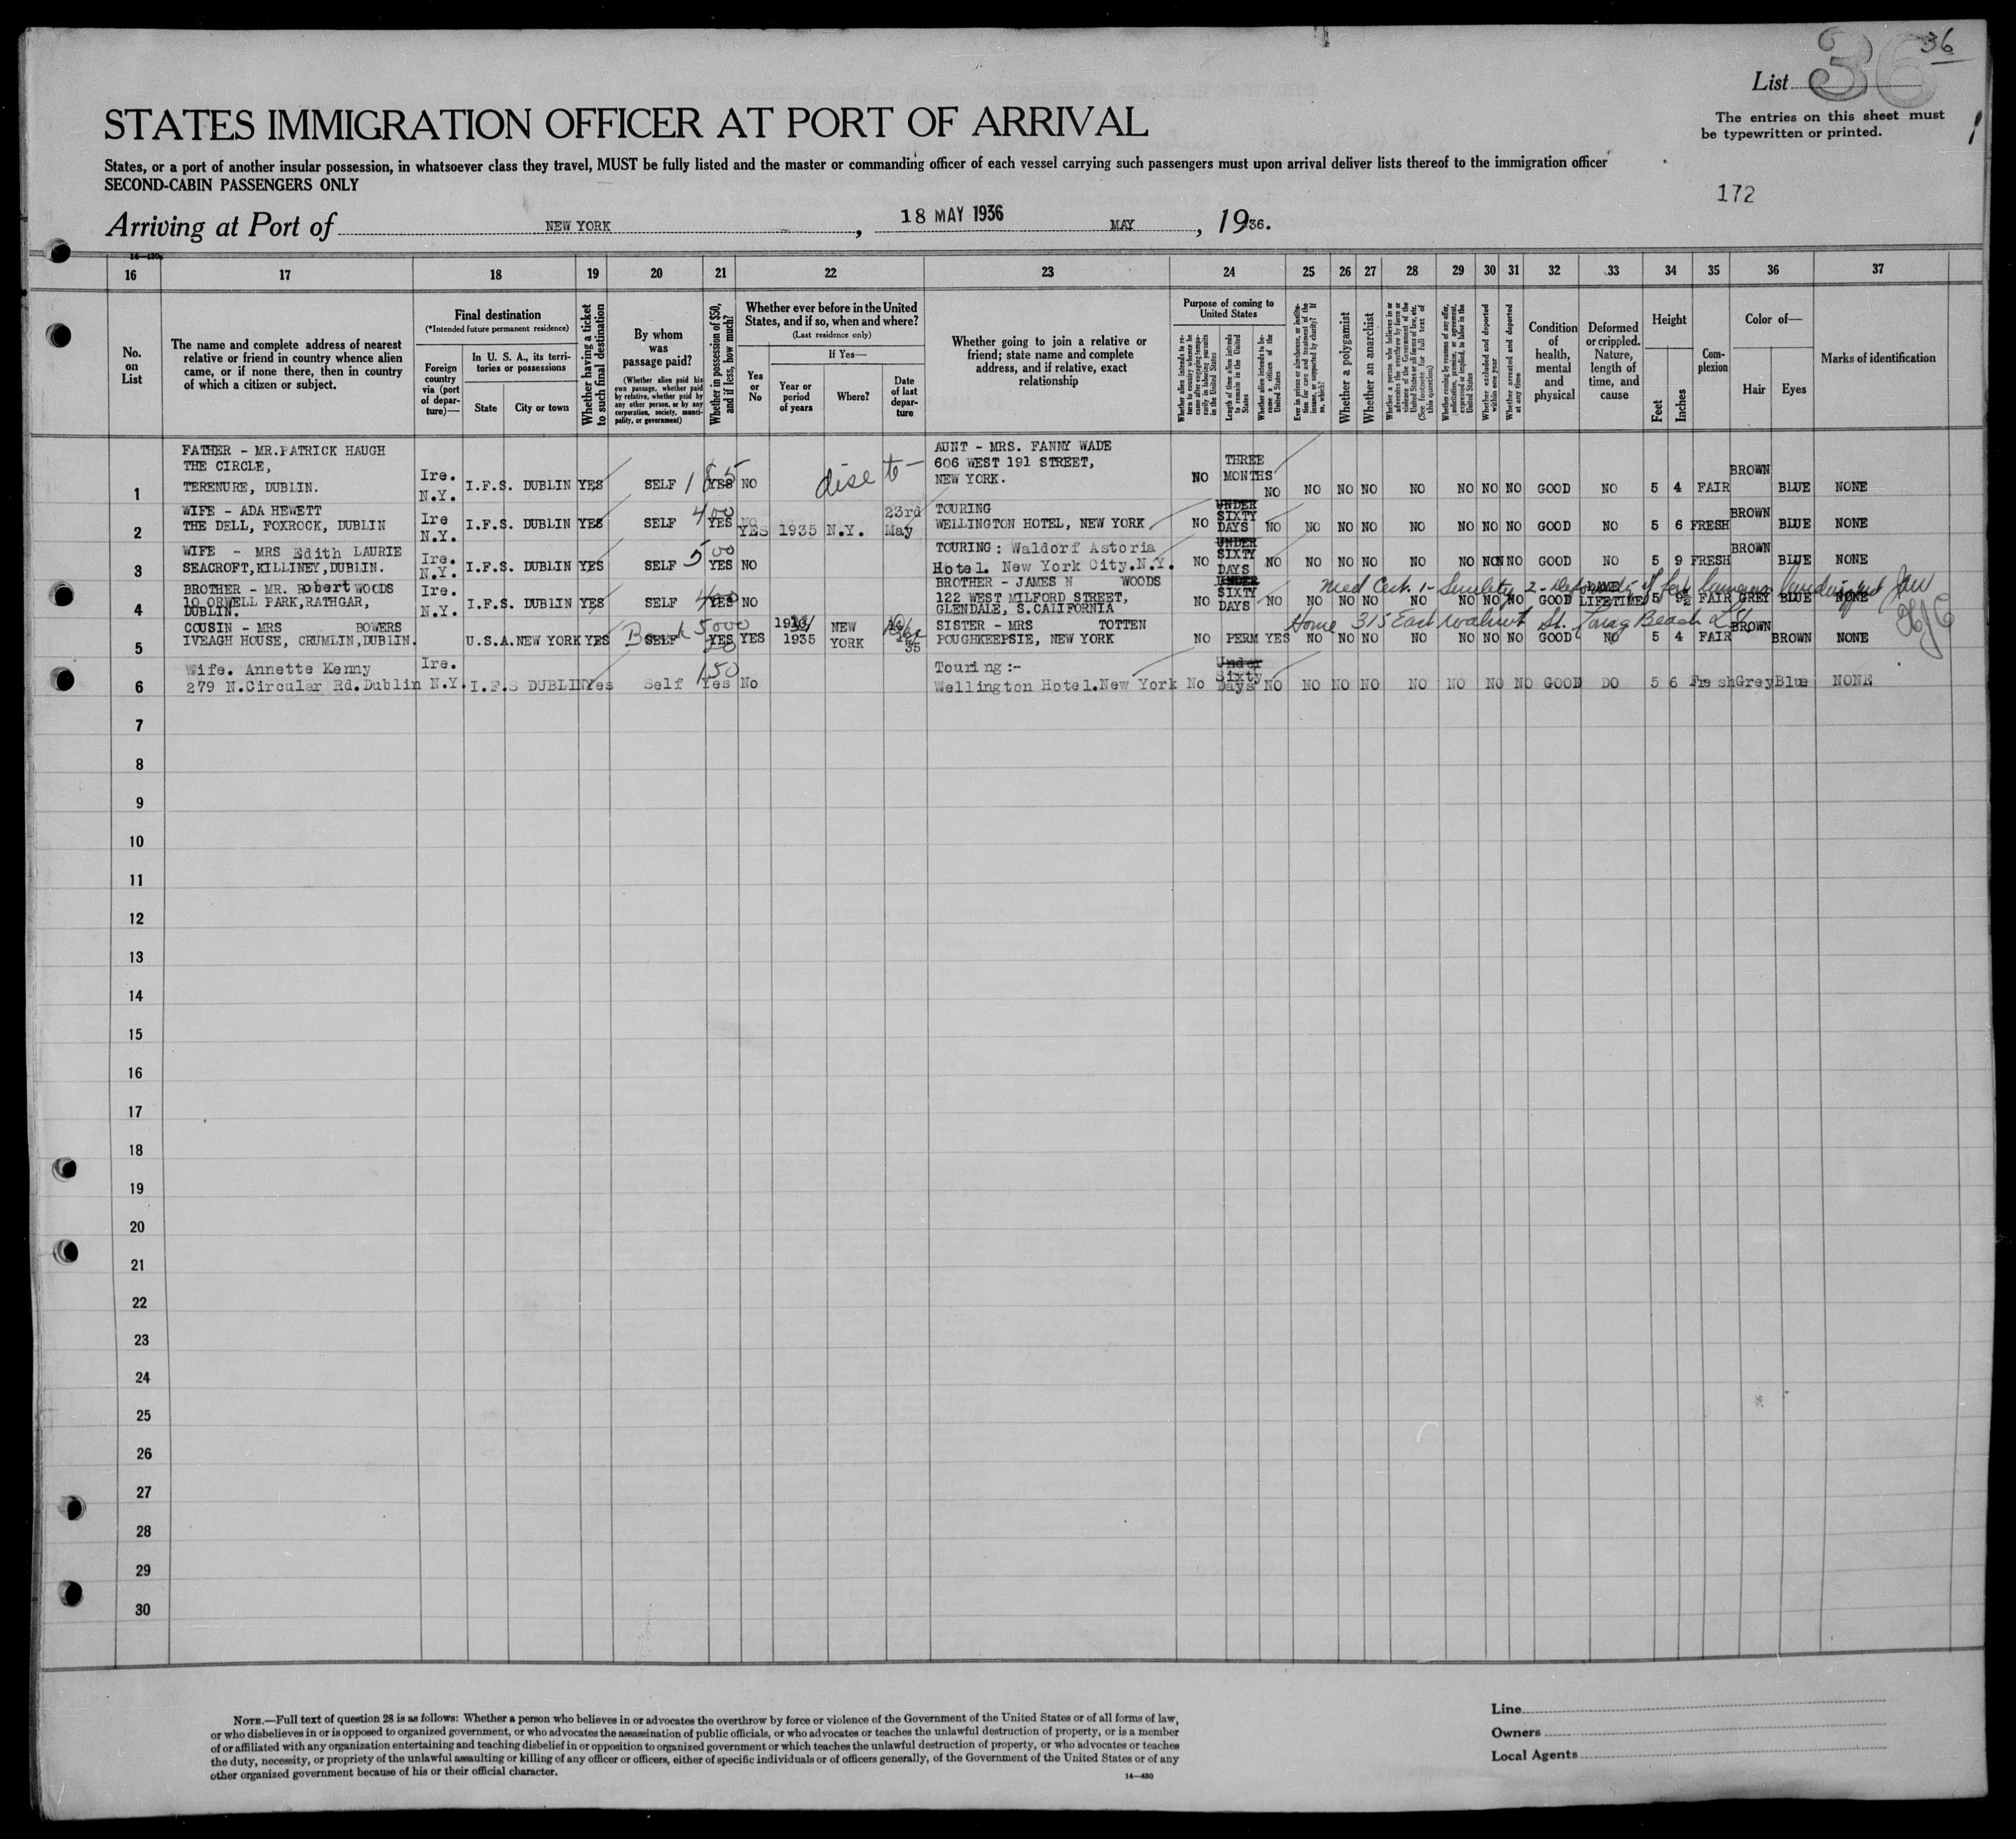 36
List 36
STATES IMMIGRATION OFFICER AT PORT OF ARRIVAL
The entries on this sheet must
be typewritten or printed.
States, or a port of another insular possession, in whatsoever class they travel, MUST be fully listed and the master or commanding officer of each vessel carrying such passengers must upon arrival deliver lists thereof to the immigration officer
SECOND-CABIN PASSENGERS ONLY
172
Arriving at Port of NEW YORK, 18 MAY 1936 MAY, 1936.
16 17 18 19 20 21 22 23 24 25 26 27 28 29 30 31 32 33 34 35 36 37
No. on List
The name and complete address of nearest relative or friend in country whence alien came, or if none there, then in country of which a citizen or subject.
Final destination
(*Intended future permanent residence)
Foreign country via (port of departure)—
In U. S. A., its territories or possessions
State City or town
Whether having a ticket to such final destination
By whom was passage paid?
(Whether alien paid his own passage, whether paid by relative, whether paid by any other person, or by any corporation, society, municipality, or government)
Whether in possession of $50, and if less, how much?
Whether ever before in the United States, and if so, when and where?
(Last residence only)
Yes or No
If Yes—
Year or period of years
Where?
Date of last departure
Whether going to join a relative or friend; state name and complete address, and if relative, exact relationship
Purpose of coming to United States
Length of time alien intends to remain in the United States
Whether alien intends to become a citizen of the United States
Whether a polygamist
Whether an anarchist
Whether excluded and deported within one year
Whether arrested and deported at any time
Condition of health, mental and physical
Deformed or crippled. Nature, length of time, and cause
Height
Feet Inches
Complexion
Color of—
Hair Eyes
Marks of identification
1 FATHER - MR.PATRICK HAUGH
THE CIRCLE,
TERENURE, DUBLIN. Ire. N.Y. I.F.S. DUBLIN YES SELF 185 YES NO
AUNT - MRS. FANNY WADE
606 WEST 191 STREET,
NEW YORK. NO THREE MONTHS NO NO NO NO NO NO NO NO GOOD NO 5 4 FAIR BROWN BLUE NONE
2 WIFE - ADA HEWETT
THE DELL, FOXROCK, DUBLIN Ire N.Y. I.F.S. DUBLIN YES SELF 400 YES NO YES 1935 N.Y. 23rd May
TOURING
WELLINGTON HOTEL, NEW YORK NO UNDER SIXTY DAYS NO NO NO NO NO NO NO NO GOOD NO 5 6 FRESH BROWN BLUE NONE
3 WIFE - MRS Edith LAURIE
SEACROFT,KILLINEY,DUBLIN. Ire. N.Y. I.F.S. DUBLIN YES SELF 500 YES NO
TOURING: Waldorf Astoria
Hotel. New York City.N.Y. NO UNDER SIXTY DAYS NO NO NO NO NO NO NO NO GOOD NO 5 9 FRESH BROWN BLUE NONE
4 BROTHER - MR. Robert WOODS
10 ORWELL PARK,RATHGAR,
DUBLIN. Ire. N.Y. I.F.S. DUBLIN YES SELF 400 YES NO
BROTHER - JAMES N WOODS
122 WEST MILFORD STREET,
GLENDALE, S.CALIFORNIA NO UNDER SIXTY DAYS NO NO NO NO NO NO NO NO GOOD LAME LIFETIME 5 9½ FAIR GREY BLUE NONE
Med Cert. 1- Senility 2-
5 COUSIN - MRS BOWERS
IVEAGH HOUSE, CRUMLIN,DUBLIN. U.S.A. NEW YORK YES SELF 5000 YES YES 1935 NEW YORK 35
SISTER - MRS TOTTEN
POUGHKEEPSIE, NEW YORK NO PERM YES NO NO NO NO NO NO NO GOOD NO 5 4 FAIR BROWN BROWN NONE
Home 315 East Walnut St. Long Beach L.I.
6 Wife. Annette Kenny
279 N.Circular Rd.Dublin Ire. N.Y. I.F.S DUBLIN Yes Self 150 Yes No
Touring:-
Wellington Hotel.New York No Under Sixty Days NO NO NO NO NO NO NO NO GOOD DO 5 6 Fresh Grey Blue NONE
7
8
9
10
11
12
13
14
15
16
17
18
19
20
21
22
23
24
25
26
27
28
29
30
NOTE.—Full text of question 28 is as follows: Whether a person who believes in or advocates the overthrow by force or violence of the Government of the United States or of all forms of law,
or who disbelieves in or is opposed to organized government, or who advocates the assassination of public officials, or who advocates or teaches the unlawful destruction of property, or is a member
of or affiliated with any organization entertaining and teaching disbelief in or opposition to organized government or which teaches the unlawful destruction of property, or who advocates or teaches
the duty, necessity, or propriety of the unlawful assaulting or killing of any officer or officers, either of specific individuals or of officers generally, of the Government of the United States or of any
other organized government because of his or their official character.
14—430
Line
Owners
Local Agents